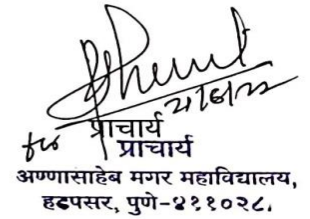 for प्राचार्य
प्राचार्य
अण्णासाहेब मगर महाविद्यालय,
हडपसर, पुणे-४११०२८.